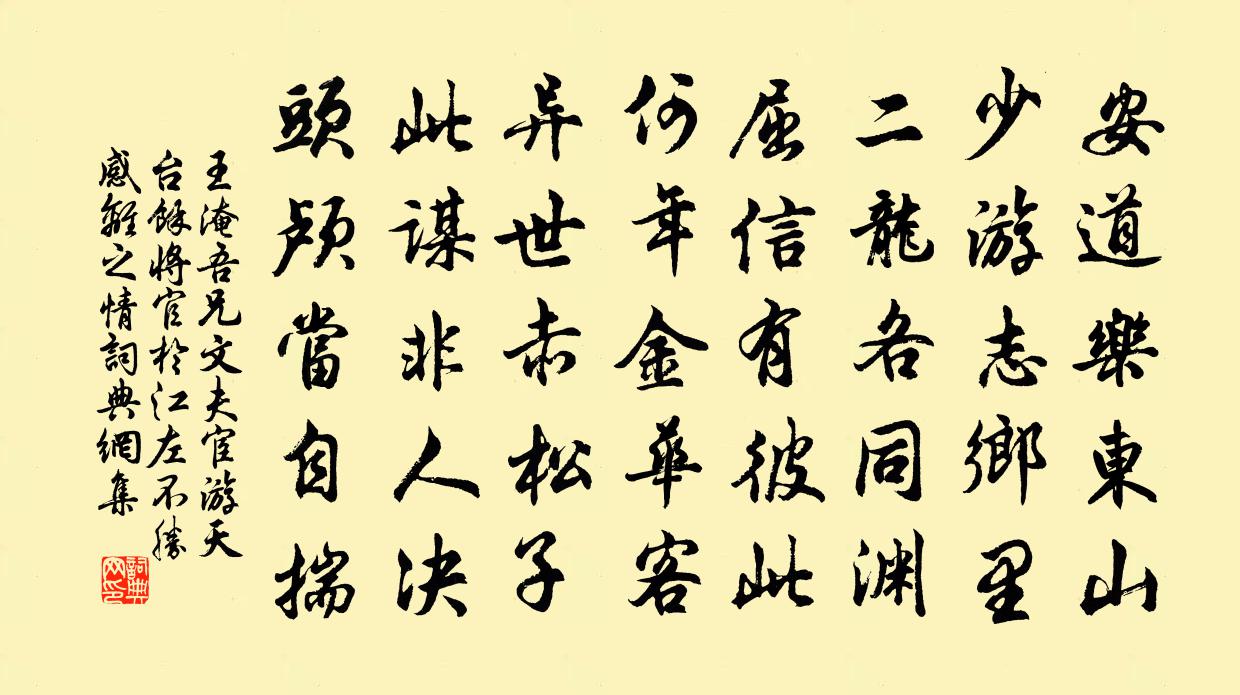 安道樂東山
少游志鄉里
二龍各同渊
屈信有彼此
何年金華客
异世赤松子
此謀非人决
頭顱當自揣
王淹吾兄文夫宦游天
台餘将官於江左不勝
感離之情詞典網集
詞典网印